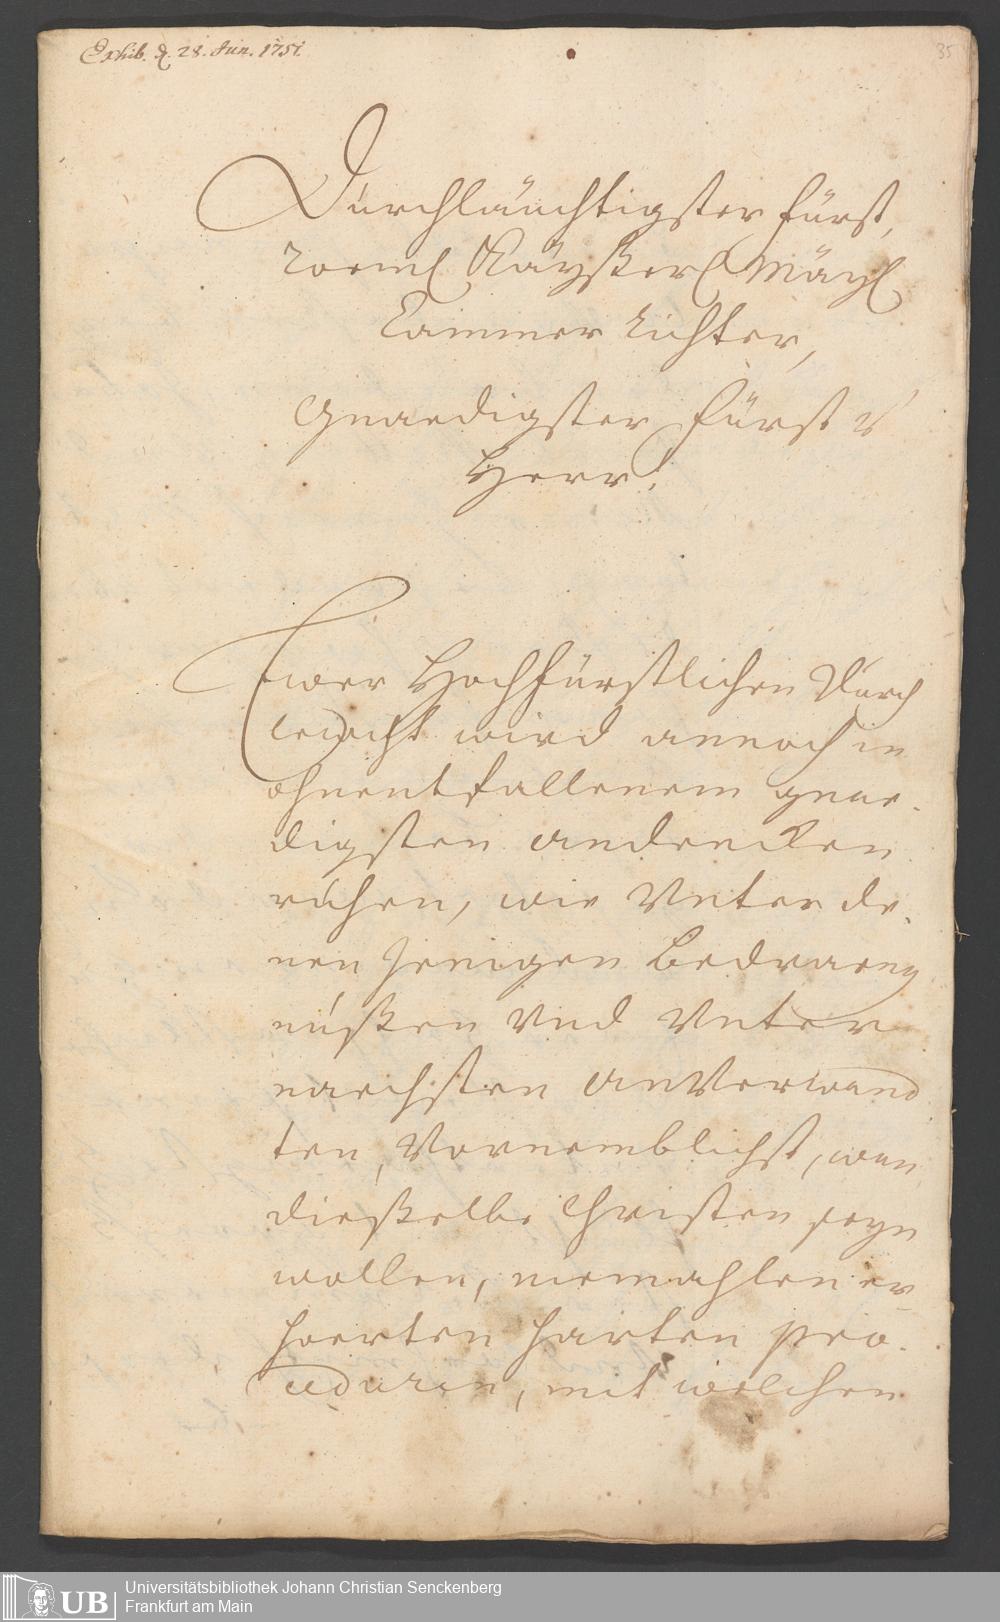 Exhib. d. 28. Jun. 1751.
35
Durchläuchtigster fürst,
Roeml Kayßerl Mäyl
Cammer Richter,
Gnaedigster fürst &
Herr!
Ewer Hochfürstlichen Durch
leucht wird annoch in
ohnentfallenem gnae-
digsten andencken
ruhen, wie Unter de-
nen jenigen Bedraeng
nüßen Und Unter
naechsten anVerwand
ten, Vornemblichst, wan
dießelbe Christen seyn
wollen, niemahlen er
hoerten harten pro-
ceduren, mit welchen
UB
Universitätsbibliothek Johann Christian Senckenberg
Frankfurt am Main